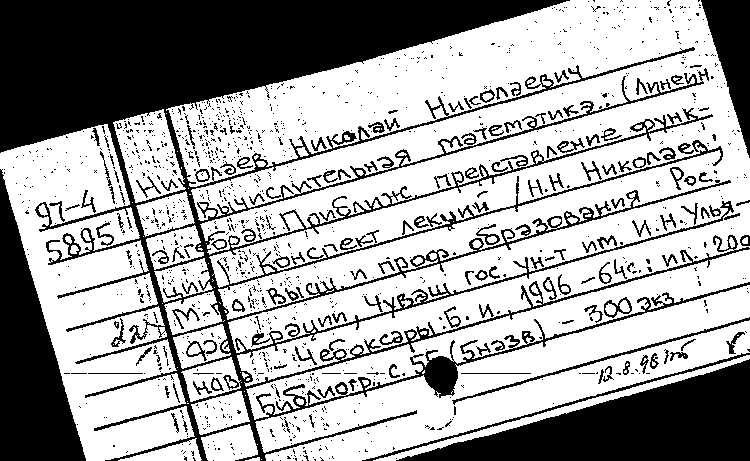 97-4
5895
Николаев, Николай Николаевич
Вычислительная математика: (Линейн.
алгебра. Приближ. представление функ-
ций): Конспект лекций / Н.Н. Николаев;
М-во высш. и проф. образования Рос.
Федерации, Чуваш. гос. ун-т им. И.Н.Улья-
нова. - Чебоксары: Б. и., 1996 - 64с.: ил.; 20с
Библиогр. с. 55 (5назв) - 300 экз.
12.8.98